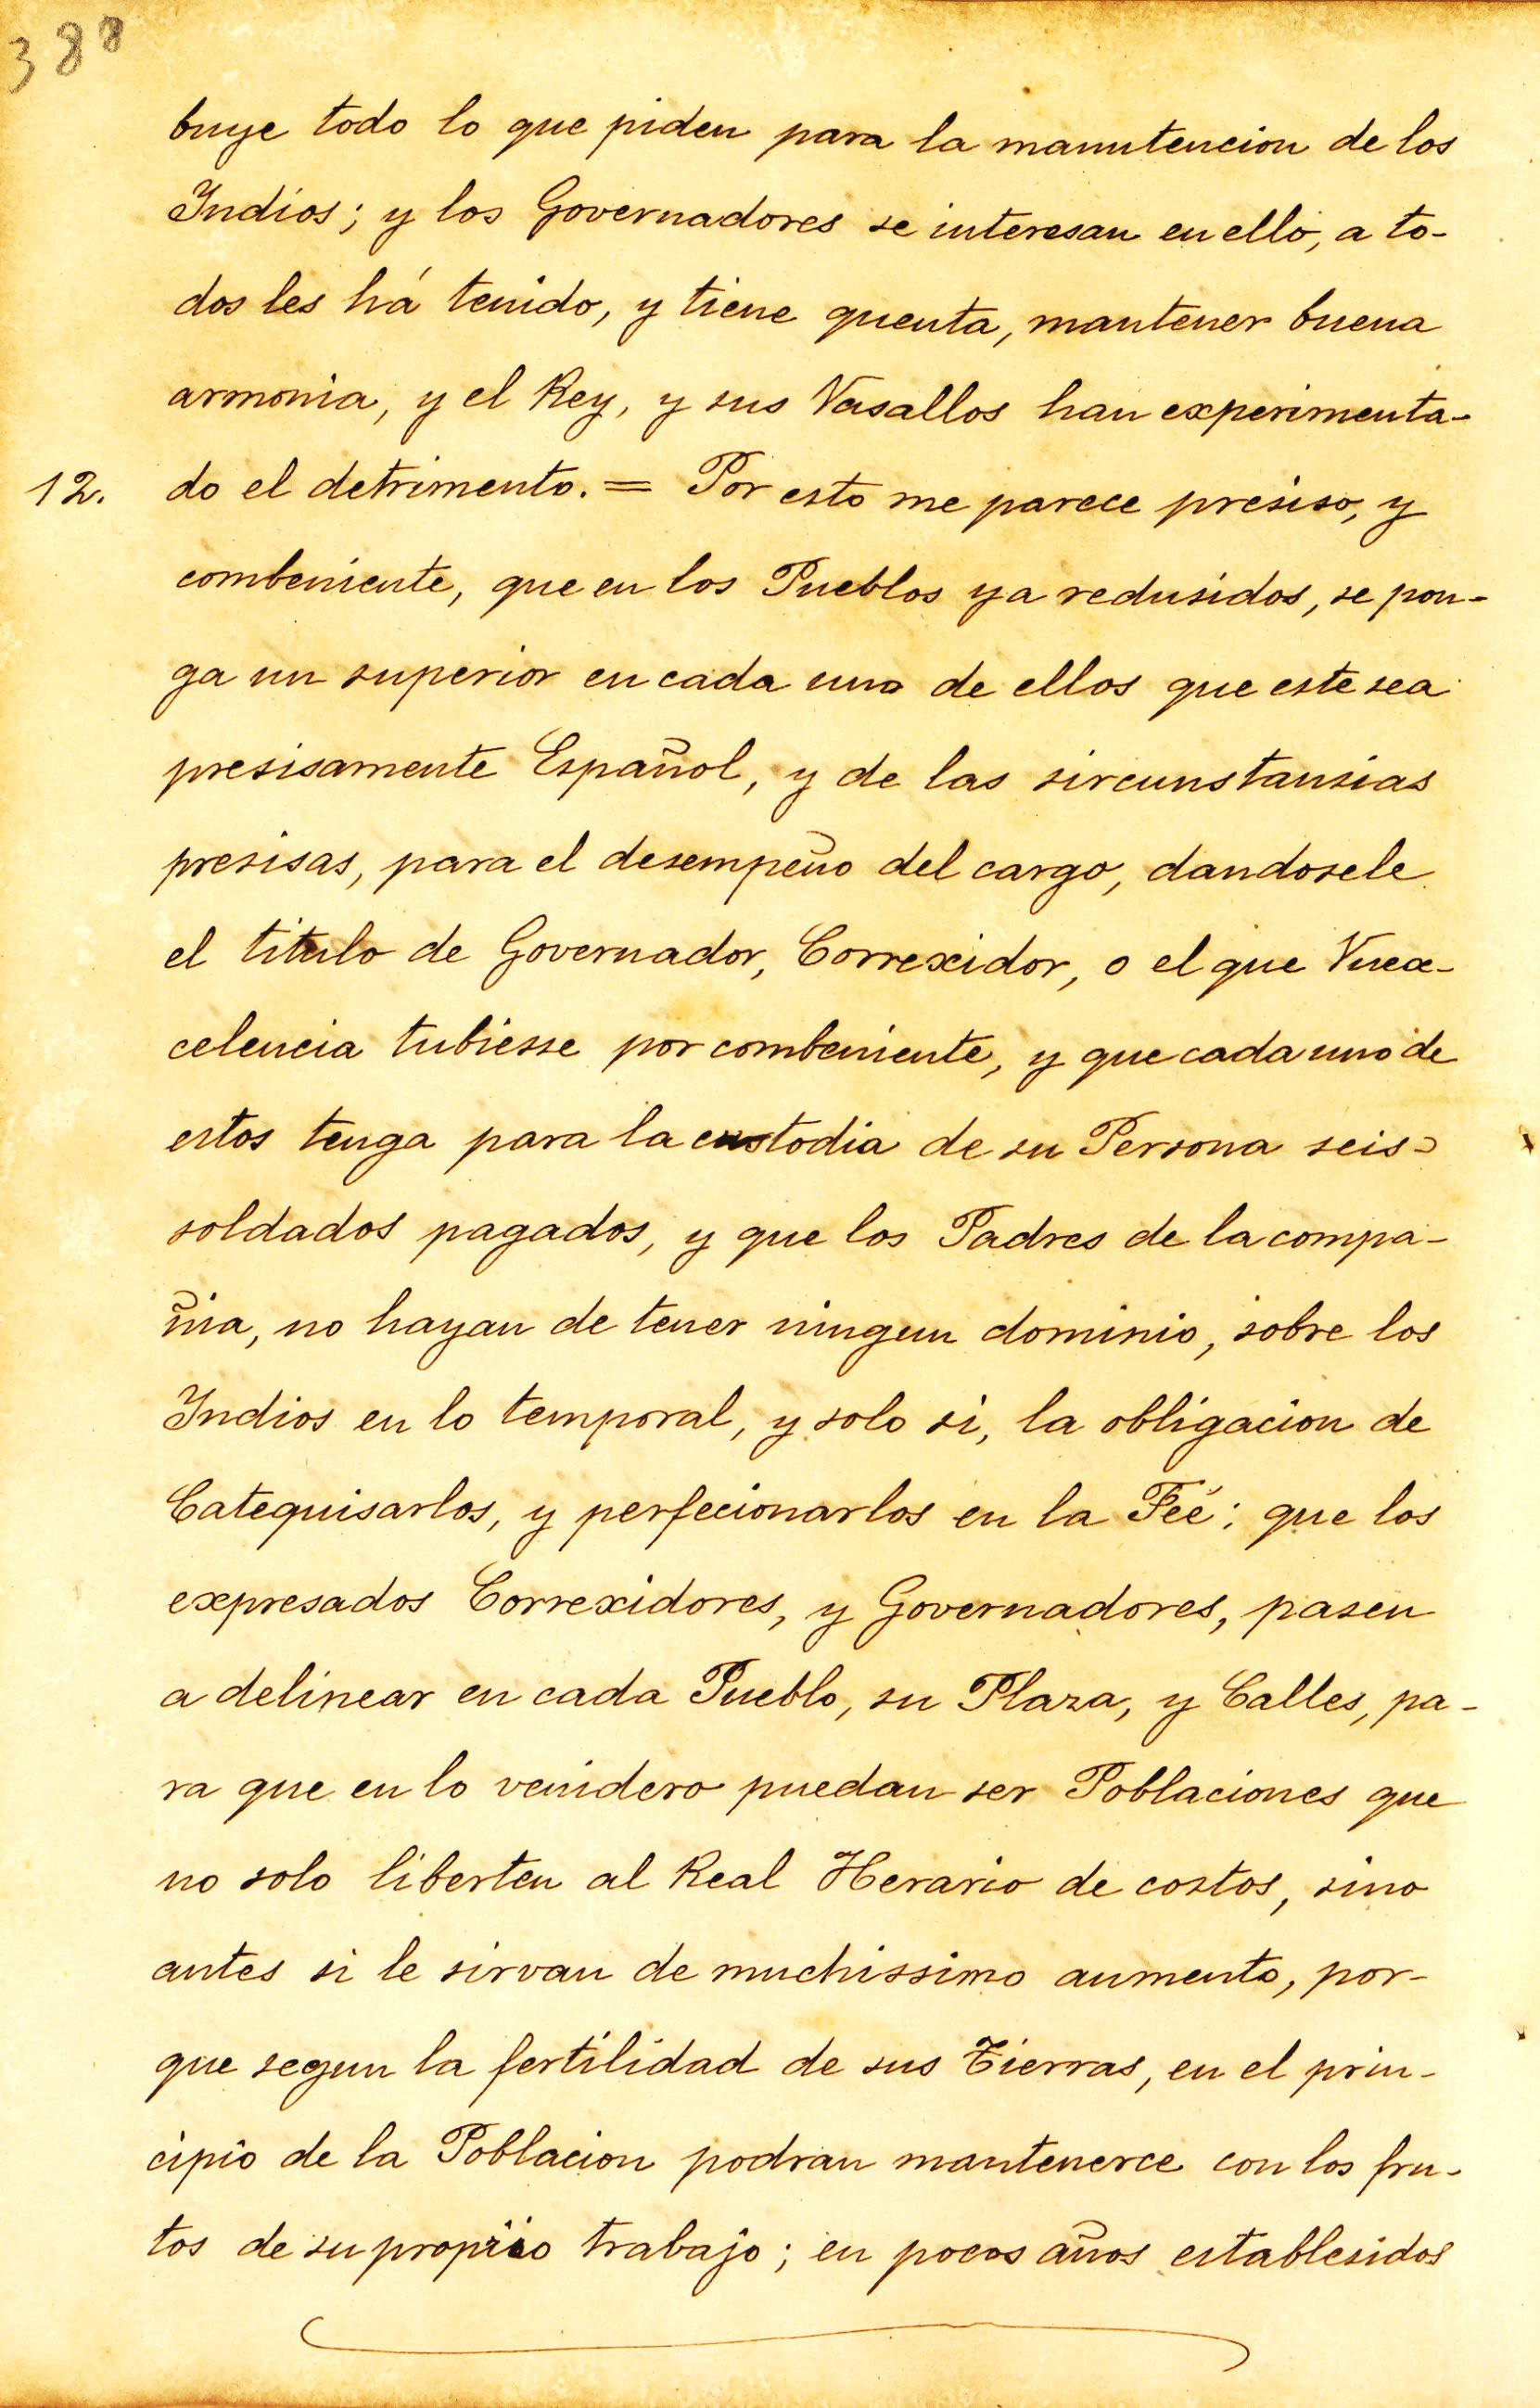 388
buye todo lo que piden para la manutencion de los
Indios; y los Governadores se interesan en ello, a to-
dos les há tenido, y tiene quenta, mantener buena
armonia, y el Rey, y sus Vasallos han experimenta-
12. do el detrimento. = Por esto me parece presiso, y
combeniente, que en los Pueblos ya redusidos, se pon-
ga un superior en cada uno de ellos que este sea
presisamente Español, y de las sircunstansias
presisas, para el desempeño del cargo, dandosele
el titulo de Governador, Correxidor, o el que Vuex-
celencia tubiesse por combeniente, y que cada uno de
estos tenga para la custodia de su Persona seis=
soldados pagados, y que los Padres de la compa-
ñia, no hayan de tener ningun dominio, sobre los
Indios en lo temporal, y solo si, la obligacion de
Catequisarlos, y perfecionarlos en la Feé; que los
expresados Correxidores, y Governadores, pasen
a delinear en cada Pueblo, su Plaza, y Calles, pa-
ra que en lo venidero puedan ser Poblaciones que
no solo liberten al Real Herario de costos, sino
antes si le sirvan de muchissimo aumento, por-
que segun la fertilidad de sus Tierras, en el prin-
cipio de la Poblacion podran mantenerce con los fru-
tos de su proprio trabajo; en pocos años establesidos